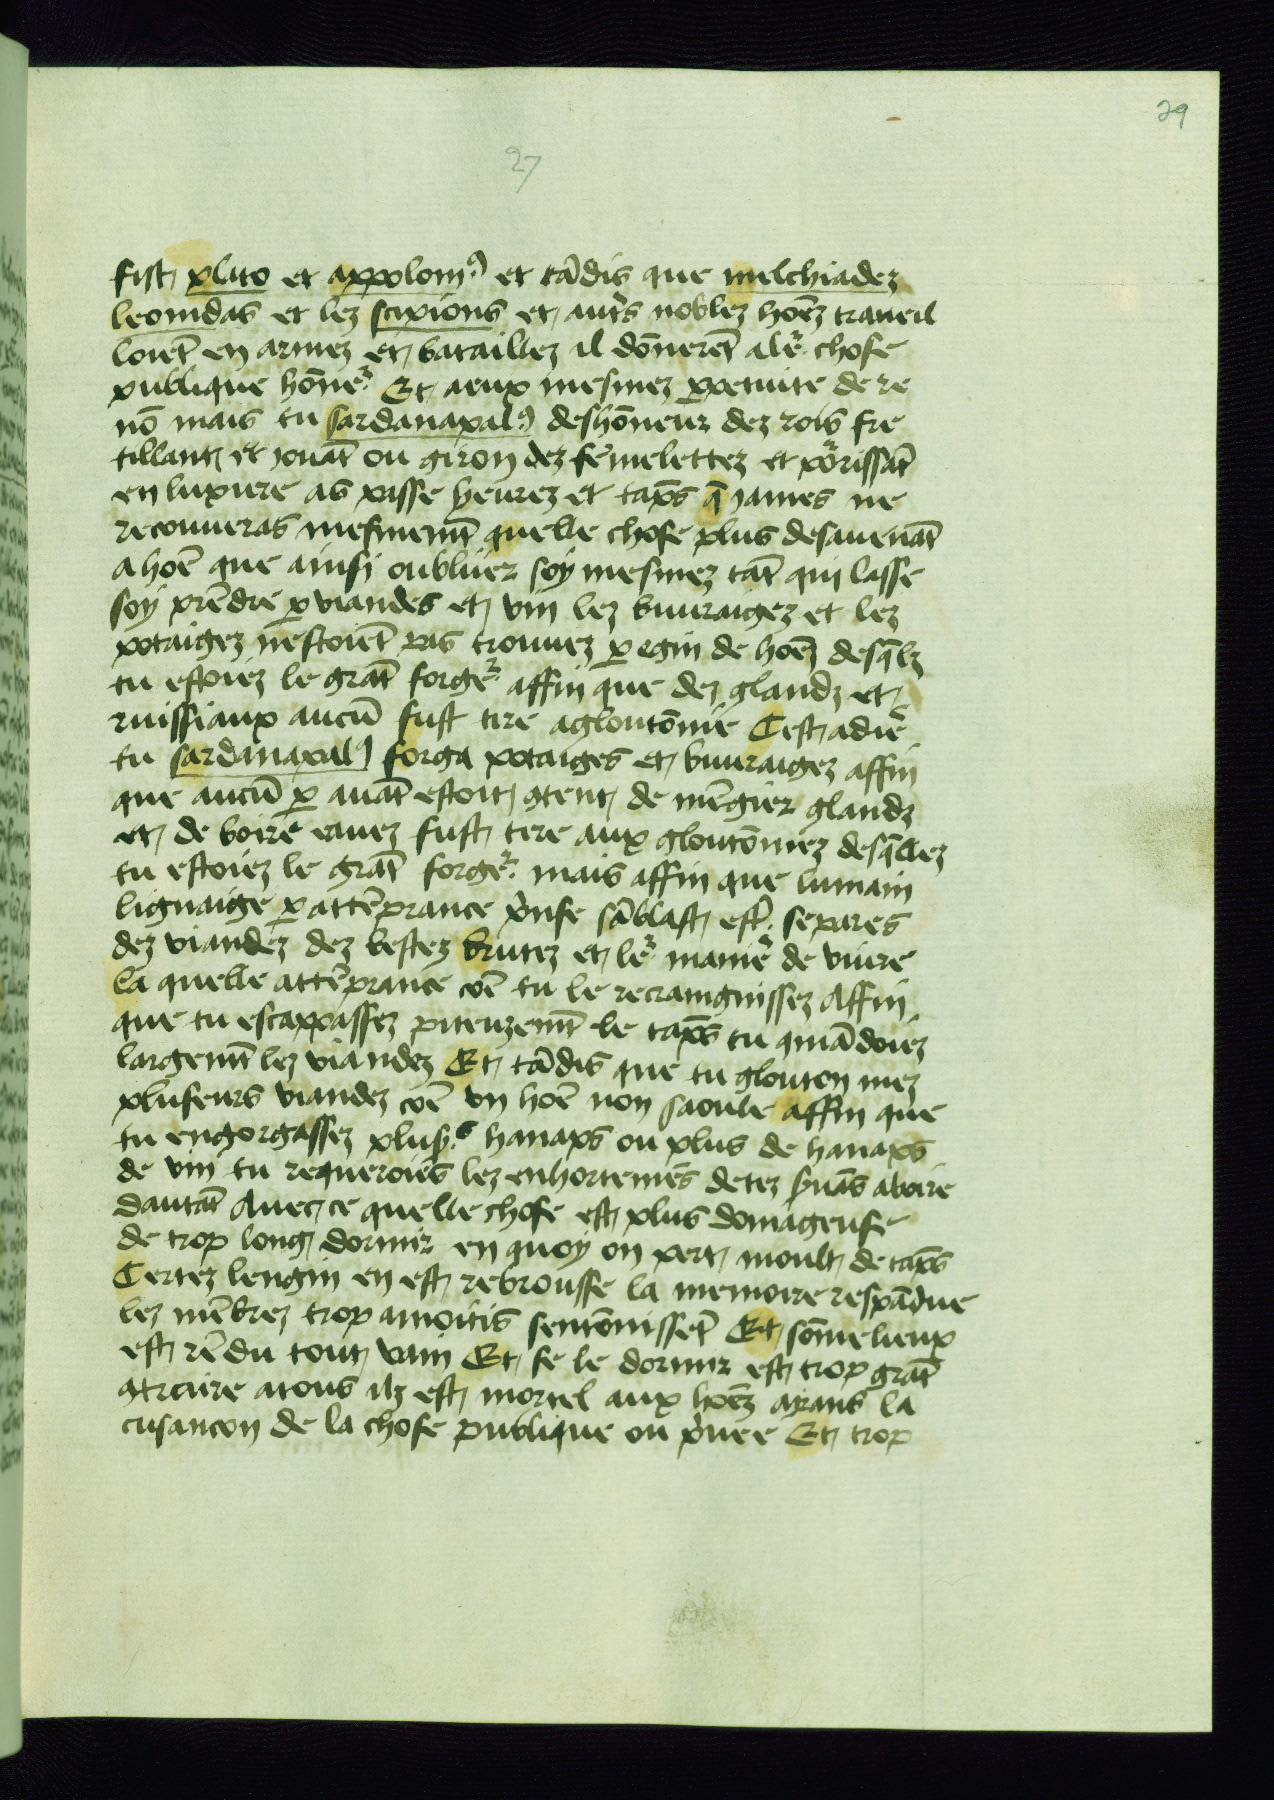 29
27
fist plato et appoloniꝰ et tādis que melchiadez
leonidas et lez scipions et autˀs noblez hoēz traueil
loiēt en armez et bataillez il dōnerēt a lēˀ chose
publique hōneˀ Et a eux mesmez ꝑpetuite de re
nō mais tu sardanapalꝰ deshōneur dez rois fre
tillant et jouāt ou giron dez fēmelettez et poˀrissāt
en luxure as passe heurez et tāps q̄ james ne
recouueras mesmemēt quelle chose plus desauenāt
a hoē que ainsi oublier soy mesmez tāt qui lasse
soy prēdre ꝑ viandes et vin lez buuraigez et lez
potaigez nestoiēt pas trouuez ꝑ egin de hoēz desq̄lz
tu estoiez le grāt forgeˀ affin que dez glandz et
ruissiaux aucū fust tire a gloutōnie Cest a dir̄e
tu sardanapalꝰ forga potaiges et buuraigez affin
que aucū ꝑ auāt estoit ꝯtent de mēgier glandz
et de boire eauez fust tire aux gloutōniez desq̄llez
tu estoiez le grāt forgeˀ mais affin que lumain
lignaige ꝑ attēprance pˀnse sāblast estˀ separes
dez viandez dez bestez brutez et lēˀ manieˀ de viure
La quelle attēprance cōe tu le recraingnissez Affin
que tu escappassez piteuzemēt le tāps tu ꝯmādoiez
largemēt lez viandez Et tādis que tu glouton niez
pluseurs viandez cōe vn hoē non saoule affin que
tu engorgassez plusˀs hanaps ou plus de hanaps
de vin tu requerois lez enhortemēs de tez sˀuās a boire
dautāt Auec ce quelle chose est plus domageuse
de trop long dormir en quoy on pert moult de tāps
Certez lengin en est rebrousse la memoire respādue
lez mēbrez trop amoitis sentōnissēt Et sōmelieux
est rēdu tout vain Et se le dormir est trop grāt
ꝯtraire a tous ilz est mortel aux hoēz ayans la
cusancon de la chose publique ou pˀuee Et trop